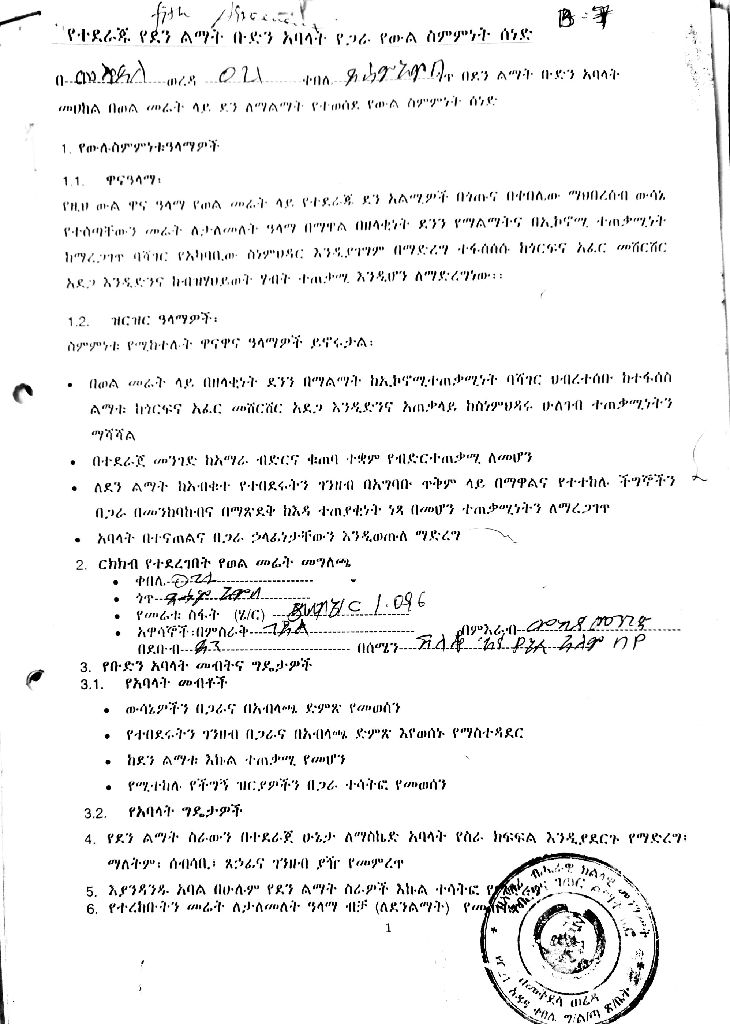 የተደራጁ የደን ልማት ቡድን አባላት የጋራ የውል ስምምነት ሰነድ
በ ወረዳ 021 ቀበሌ ጎጥ በደን ልማት ቡድን አባላት
መሀከል በወል መሬት ላይ ደን ለማልማት የተወሰደ የውል ስምምነት ሰነድ
1. የውሉስምምነቱዓላማዎች
1.1. ዋናዓላማ፡
የዚህ ውል ዋና ዓላማ የወል መሬት ላይ የተደራጁ ደን አልሚዎች በጎጡና በቀበሌው ማህበረሰብ ውሳኔ
የተሰጣቸውን መሬት ለታለመለት ዓላማ በማዋል በዘላቂነት ደንን የማልማትና በኢኮኖሚ ተጠቃሚነት
ከማረጋገጥ ባሻገር የአካባቢው ስነምህዳር እንዲያገግም በማድረግ ተፋሰሰሱ ከጎርፍና አፈር መሸርሸር
አደጋ እንዲድንና ከብዝሃህይወት ሃብት ተጠቃሚ እንዲሆን ለማድረግነው፡፡
1.2. ዝርዝር ዓላማዎች፡
ስምምነቱ የሚከተሉት ዋናዋና ዓላማዎች ይኖሩታል፡
• በወል መሬት ላይ በዘላቂነት ደንን በማልማት ከኢኮኖሚተጠቃሚነት ባሻገር ህብረተሰቡ ከተፋሰስ
ልማቱ ከጎርፍና አፈር መሸርሸር አደጋ እንዲድንና አጠቃላይ ከስነምህዳሩ ሁለገብ ተጠቃሚነትን
ማሻሻል
• በተደራጀ መንገድ ከአማራ ብድርና ቁጠባ ተቋም የብድርተጠቃሚ ለመሆን
• ለደን ልማት ከአብቁተ የተበደሩትን ገንዘብ በአግባቡ ጥቅም ላይ በማዋልና የተተከሉ ችግኞችን
በጋራ በመንከባከብና በማጽደቅ ከእዳ ተጠያቂነት ነጻ በመሆን ተጠቃሚነትን ለማረጋገጥ
• አባላት በተናጠልና በጋራ ኃላፊነታቸውን እንዲወጡለ ማድረግ
2. ርክክብ የተደረገበት የወል መሬት መግለጫ
• ቀበሌ 021
• ጎጥ
• የመሬቱ ስፋት (ሄ/ር) 1.096
• አዋሳኞች፡በምስራቅ በምእራብ
በደቡብ በሰሜን
3. የቡድን አባላት መብትና ግዴታዎች
3.1. የአባላት መብቶች
• ውሳኔዎችን በጋራና በአብላጫ ድምጽ የመወሰን
• የተበደሩትን ገንዘብ በጋራና በአብላጫ ድምጽ እየወሰኑ የማስተዳደር
• ከደን ልማቱ እኩል ተጠቃሚ የመሆን
• የሚተከሉ የችግኝ ዝርያዎችን በጋራ ተሳትፎ የመወሰን
3.2. የአባላት ግዴታዎች
4. የደን ልማት ስራውን በተደራጀ ሁኔታ ለማስኬድ አባላት የስራ ክፍፍል እንዲያደርጉ የማድረግ፡
ማለትም፡ ሰብሳቢ፡ ጸኃፊና ገንዘብ ያዥ የመምረጥ
5. እያንዳንዱ አባል በሁሉም የደን ልማት ስራዎች እኩል ተሳትፎ
6. የተረከቡትን መሬት ለታለመለት ዓላማ ብቻ (ለደንልማት)
1